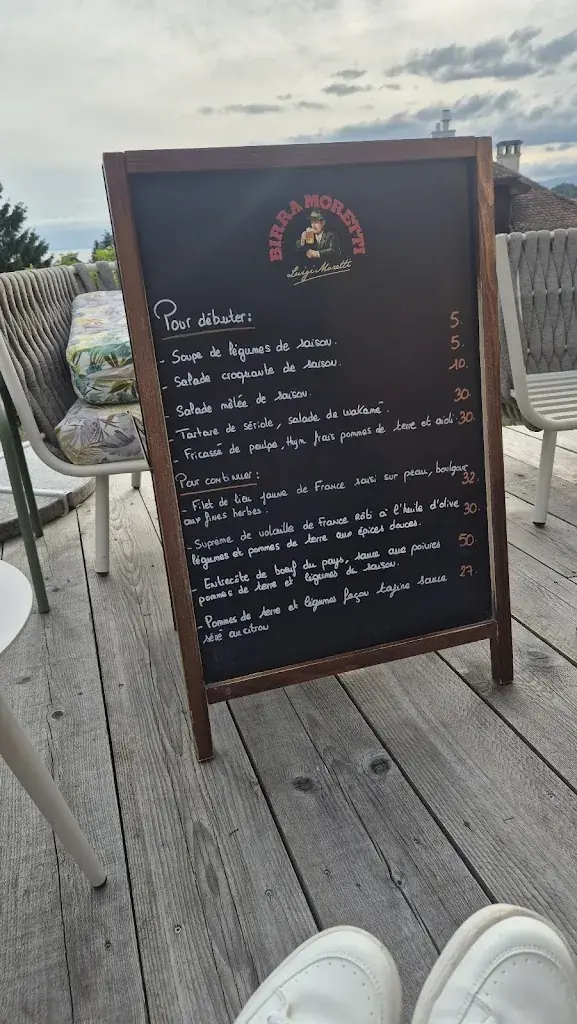 BIRRA MORETTI
Luigi Moretti
Pour débuter:
- Soupe de légumes de saison. 5.
- Salade croquante de saison. 5.
- Salade mêlée de saison. 10.
- Tartare de sériole, salade de wakamé. 30.
- Fricassé de poulpe, thym frais pommes de terre et aïoli. 30.
Pour continuer:
- Filet de lieu jaune de France saisi sur peau, boulgour 32.
aux fines herbes.
- Suprême de volaille de France Rôti à l'huile d'olive 30.
légumes et pommes de terre aux épices douces.
- Entrecôte de bœuf du pays, sauce aux poivres 50.
pommes de terre et légumes de saison.
- Pommes de terre et légumes façon tajine sauce 27.
séré au citron